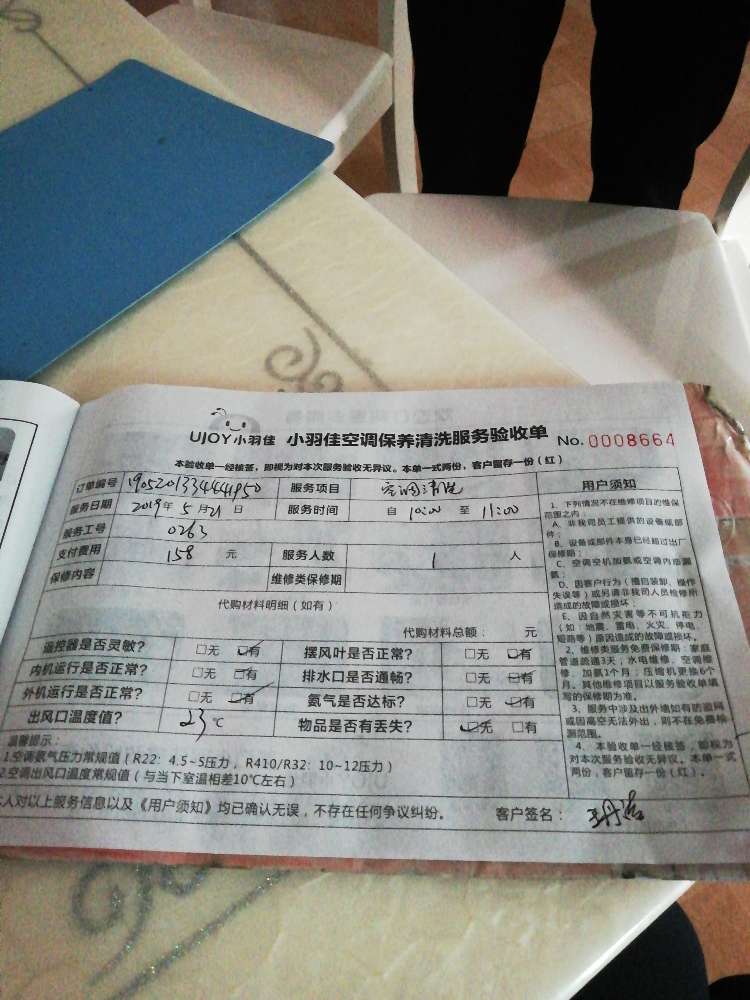 UJOY小羽佳 小羽佳空调保养清洗服务验收单 No. 0008664
本验收单一经核签，即视为对本次服务验收无异议。本单一式两份，客户留存一份（红）
订单编号 服务项目 空调清洗
服务日期 2019年 5月 21日 服务时间 自 10:00 至 11:00
服务工号 0263
支付费用 158 元 服务人数 1 人
保修内容 维修类保修期
代购材料明细（如有）
代购材料总额： 元
遥控器是否灵敏？ □无 □有 摆风叶是否正常？ □无 □有
内机运行是否正常？ □无 □有 排水口是否通畅？ □无 □有
外机运行是否正常？ □无 □有 氨气是否达标？ □无 □有
出风口温度值？ 23 ℃ 物品是否有丢失？ □无 □有
温馨提示：
1.空调氨气压力常规值（R22：4.5~5压力，R410/R32：10~12压力）
2.空调出风口温度常规值（与当下室温相差10℃左右）
本人对以上服务信息以及《用户须知》均已确认无误，不存在任何争议纠纷。 客户签名：
用户须知
1、下列情况不在维修项目的维保
范围之内：
A、非我司员工提供的设备或部
件；
B、设备或部件本身已经超过出厂
保修期；
C、空调空机加氨或空调内泄漏
氨；
D、因客户行为（擅自装卸、操作
失误等）或另请非我司人员检修所
造成的故障或损坏；
E、因自然灾害等不可抗拒力
（如：地震、雷电、火灾、停电、
短路等）原因造成的故障或损坏。
2、维修类服务免费保修期：家庭
管道疏通3天；水电维修、空调维
修、加氨1个月；压缩机更换6个
月。其他维修项目以服务验收单填
写的保修期为准。
3、服务中涉及出外墙如有防盗网
或因高空无法外出，则不在免费检
测范围。
4、本验收单一经核签，即视为
对本次服务验收无异议。本单一式
两份，客户留存一份（红）。